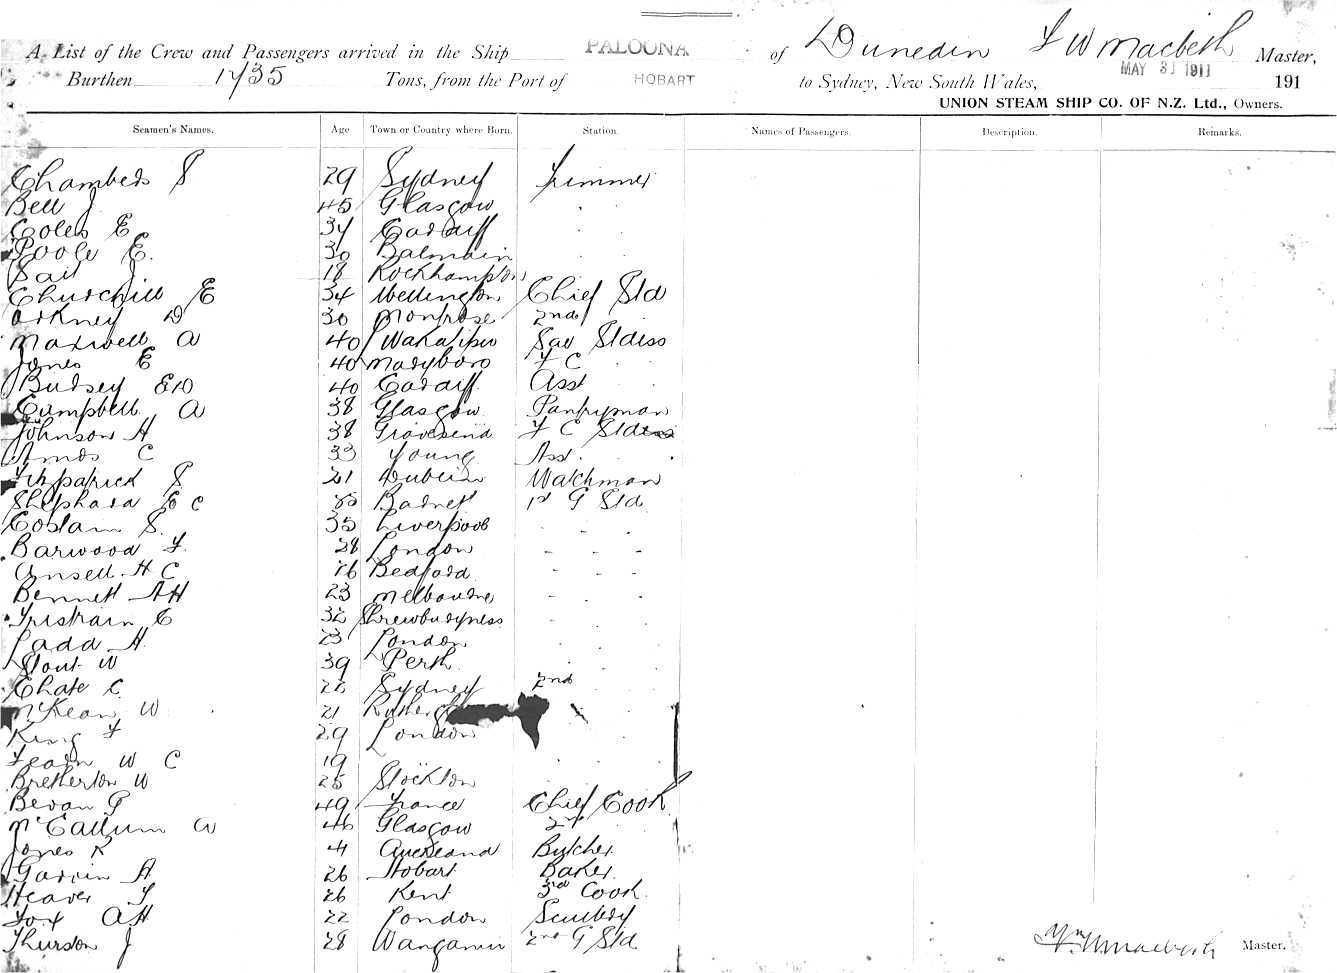 A List of the Crew and Passengers arrived in the Ship PALOONA of Dunedin F W Macbeth Master,
Burthen 1735 Tons, from the Port of HOBART to Sydney, New South Wales, MAY 31 1911 191
UNION STEAM SHIP CO. OF N.Z. Ltd., Owners.
Seamen's Names. Age Town or Country where Born. Station. Names of Passengers. Description. Remarks.
Chambers S 29 Sydney Trimmer
Bell J 45 Glasgow
Coles E 34 Cardiff
Poole E. 30 Balmain
J 18 Rockhampton
Churchill E 34 Wellington Chief Std
Orkney D 30 Montrose 2nd
Maxwell A 40 Wakatipu Sal Stdess
Jones E 40 Maryboro F C
E D 40 Cardiff Asst
Campbell A 38 Glasgow Pantryman
Johnson H 38 Gravesend F C Std
Amos C 33 Young Asst.
Fitzpatrick S 21 Dublin Watchman
Shephard E C Barnett 1st G Std
Costain S. 35 Liverpool - -
Barwood F. 28 London - - -
Ansell H C 26 Bedford - - -
Bennett A H 23 Melbourne - - -
Tristrain E 32 Shrewburyness
Ladd H. 23 London
Stout W 39 Perth
Chate C. 22 Sydney 2nd
McKean W 21
King F 29 London
Fearn W C 19
Bretherton W 25 Stockton
Bevan G 49 France Chief Cook
McCallum A 46 Glasgow 2nd
Jones R Auckland Butcher
Garvin A 26 Hobart Baker
Heaver T 26 Kent 3rd Cook
Fox A H 22 London
Thurston J 28 Wanganui 2nd G Std
Wm Macbeth Master.